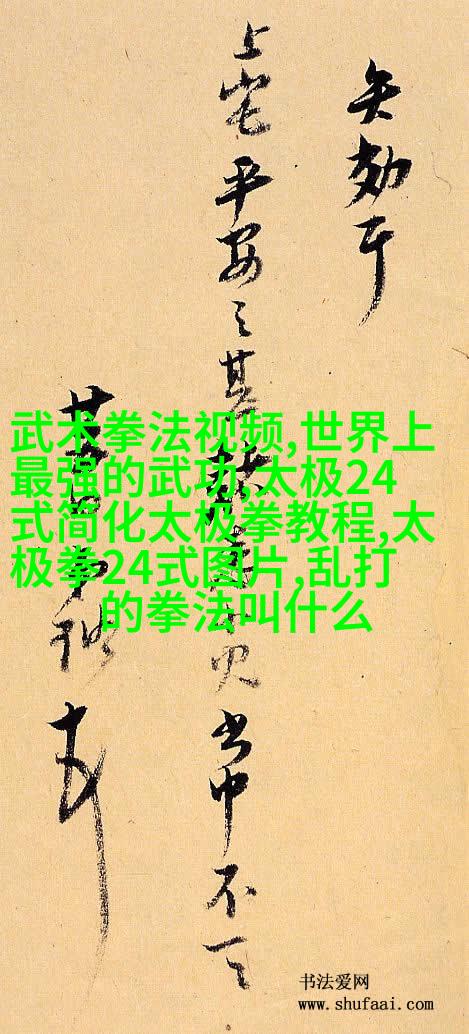 武术拳法视频,世界上
最强的武功,太极24
式简化太极拳教程,太
极拳24式图片,乱打
的拳法叫什么
上宅平安之甚 書中不一
书法爱网
www.shufaai.com